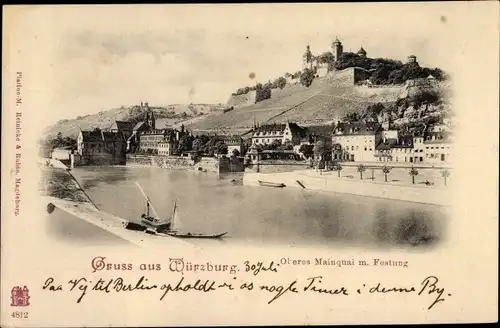 Platino-M. Reinicke & Rubin, Magdeburg.
Gruss aus Würzburg. 30 Juli
Oberes Mainquai m. Festung
Paa Vej til Berlin opholdt vi os nogle Timer i denne By.
4812